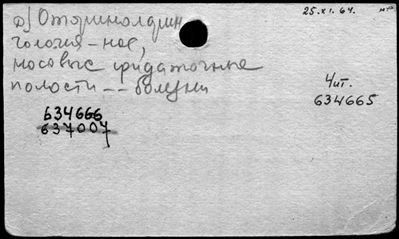 25.XI.64.
2) Оторинолорин
гология - нос,
носовые придаточные
полости -- болезни
Чит.
634665
634666
637007